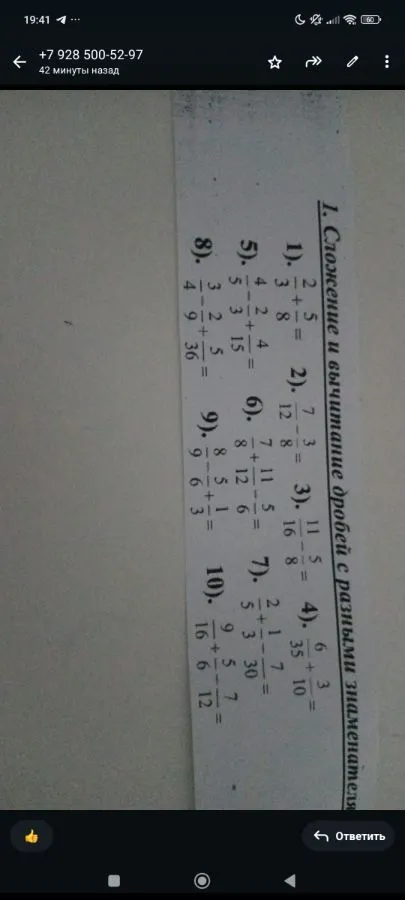 19:41
60
+7 928 500-52-97
42 минуты назад
1. Сложение и вычитание дробей с разными знаменателя
1). 2/3 + 5/8 = 2). 7/12 - 3/8 = 3). 11/16 - 5/8 = 4). 6/35 + 3/10 =
5). 4/5 - 2/3 + 4/15 = 6). 7/8 + 11/12 - 5/6 = 7). 2/5 + 1/3 - 7/30 =
8). 3/4 - 2/9 + 5/36 = 9). 8/9 - 5/6 + 1/3 = 10). 9/16 + 5/6 - 7/12 =
Ответить